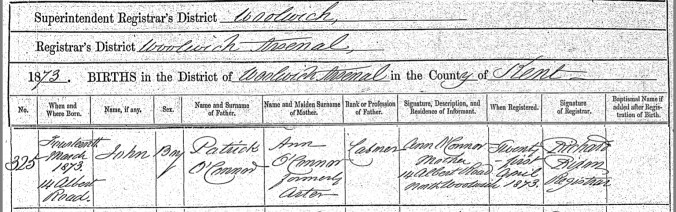 Superintendent Registrar's District Woolwich,
Registrar's District Woolwich Arsenal,
1873. BIRTHS in the District of Woolwich Arsenal in the County of Kent
No. When and Where Born. Name, if any. Sex. Name and Surname of Father. Name and Maiden Surname of Mother. Rank or Profession of Father. Signature, Description, and Residence of Informant. When Registered. Signature of Registrar. Baptismal Name if added after Registration of Birth.
325
Fourteenth
March
1873.
14 Albert
Road.
John
Boy
Patrick
O'Connor
Ann
O'Connor
formerly
Ann O'Connor
Mother
14 Albert Road
North Woolwich
Twenty
-first
April
1873.
Registrar